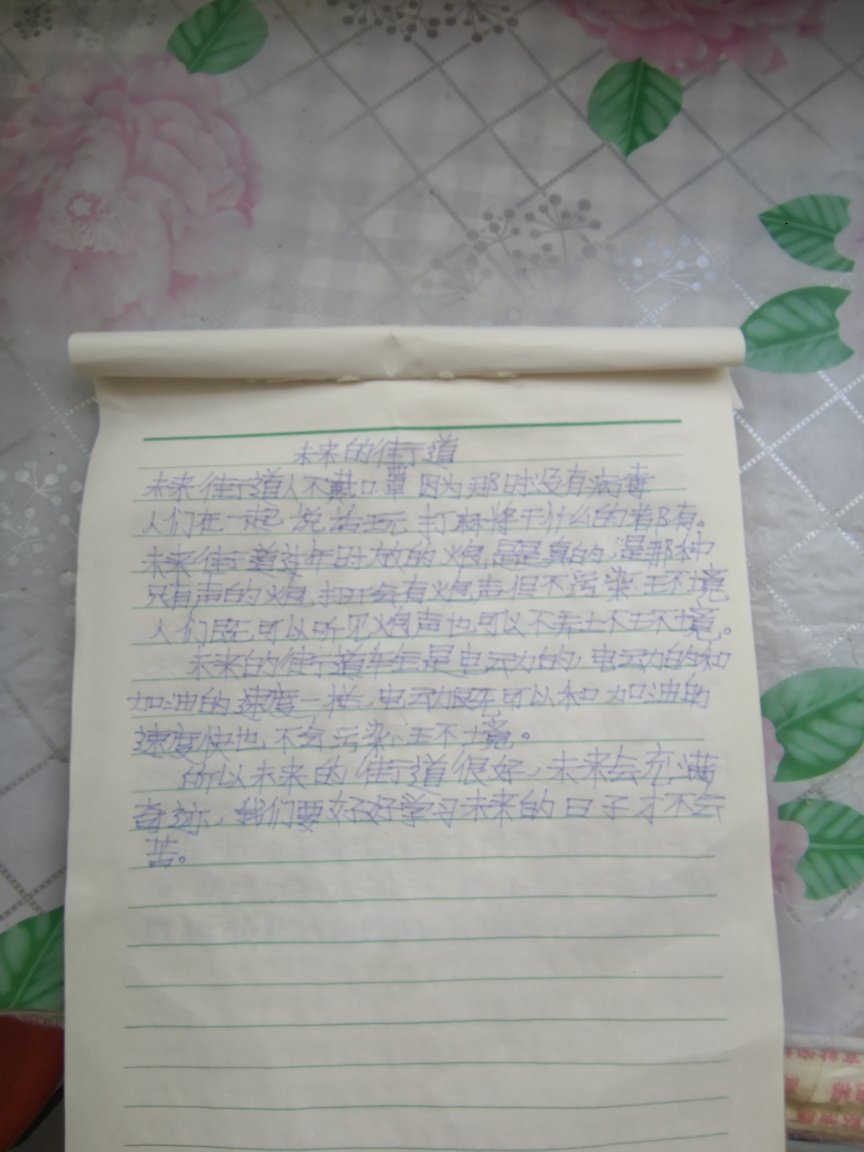 未来的街道
未来街道人不戴口罩因为那时没有病毒
人们在一起说话玩打麻将干什么的都有。
未来街道过年时放的炮,是真的,是那种
只有声的炮,会有炮声但不污染环境
人们既可以听见炮声也可以不弄土不环境。
未来的街道车全是电动的,电动的和
加油的速度一样,电动既可以和加油的
速度快也不会污染环境。
所以未来的街道很好,未来会充满
奇迹,我们要好好学习未来的日子才不会
苦。